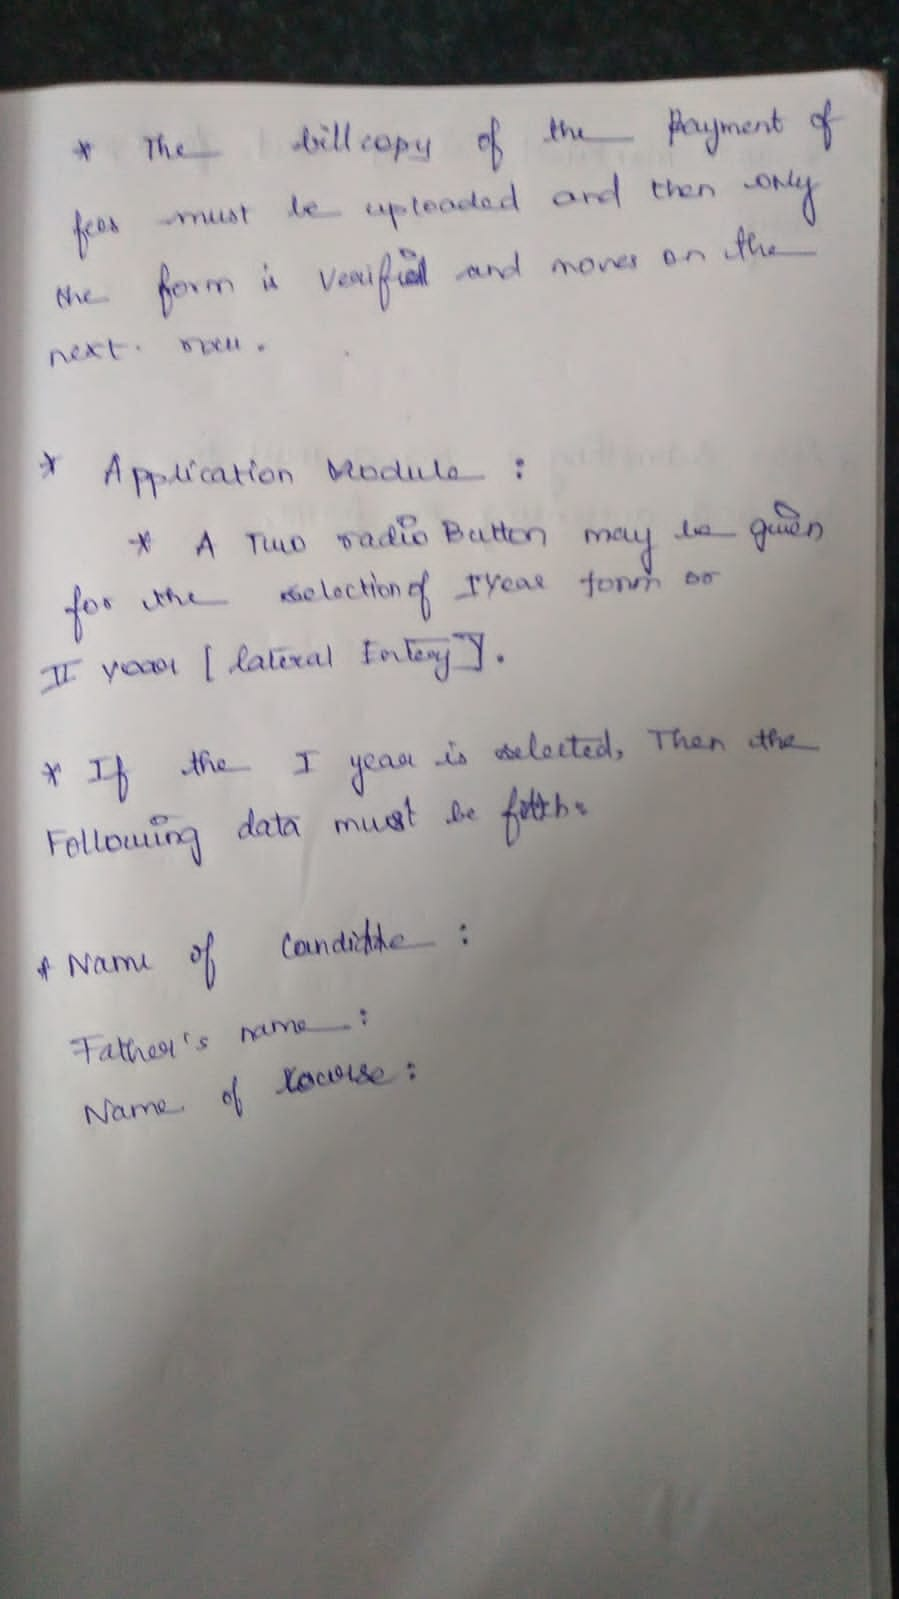 * The bill copy of the Payment of
fees must be uploaded and then only
the form is verified and moves on the
next.
* Application Module :
* A Two radio Button may be given
for the selection of I Year form or
II year [ lateral Entery ].
* If the I year is selected, Then the
Following data must be
* Name of Candidte :
Father's name :
Name of Course :